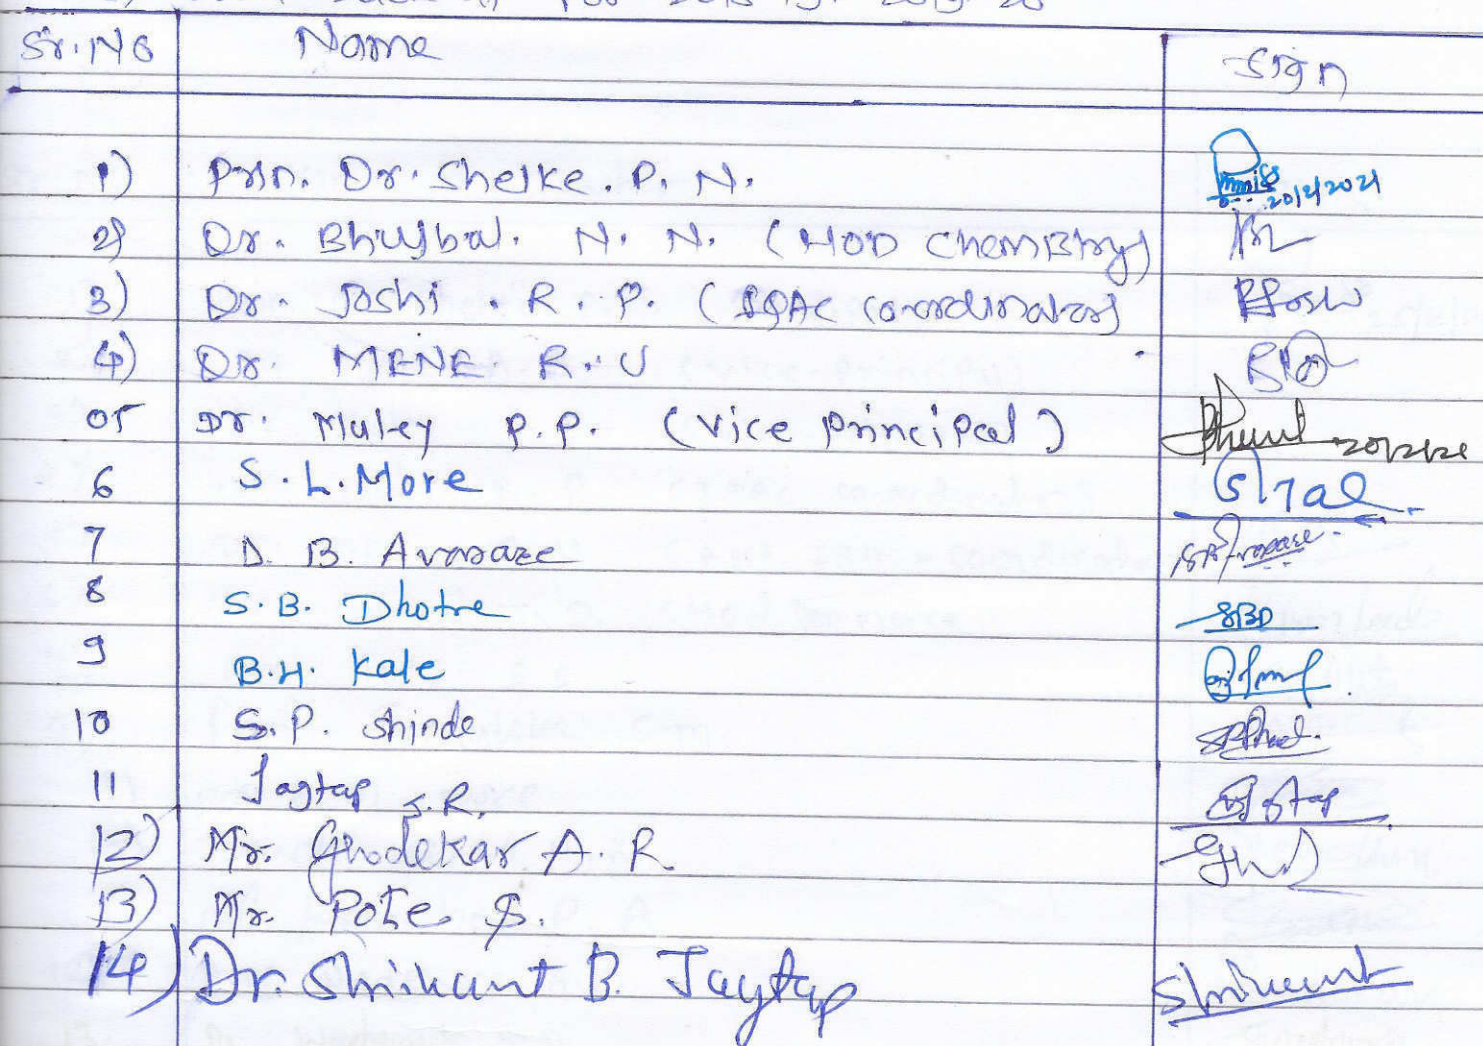 for 2018-19, 2019-20
Sr.No Name Sign
1) Prin. Dr. Shelke. P. N. 20/2/2021
2) Dr. Bhujbal. N. N. (HOD Chemistry)
3) Dr. Joshi . R. P. (IQAC Co-ordinator)
4) Dr. MENE R. U
05 Dr. Muley P.P. (Vice principal)
6 S. L. More
7 D. B. Avasare
8 S. B. Dhotre SBD
9 B.H. Kale
10 S.P. Shinde
11 Jagtap S.R.
12) Mr. Ghodekar A. R.
13) Mr. Pote S.
14) Dr. Shrikant B. Jagtap Shrikant